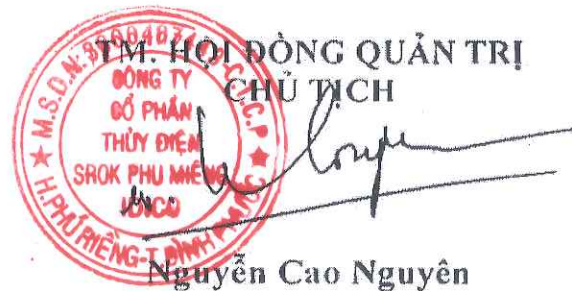 TM. HỘI ĐỒNG QUẢN TRỊ
CHỦ TỊCH
CÔNG TY
CỔ PHẦN
THỦY ĐIỆN
SROK PHU MIÊNG
IDICO
H.PHÚ RIỀNG-T.BÌNH PHƯỚC
Nguyễn Cao Nguyên